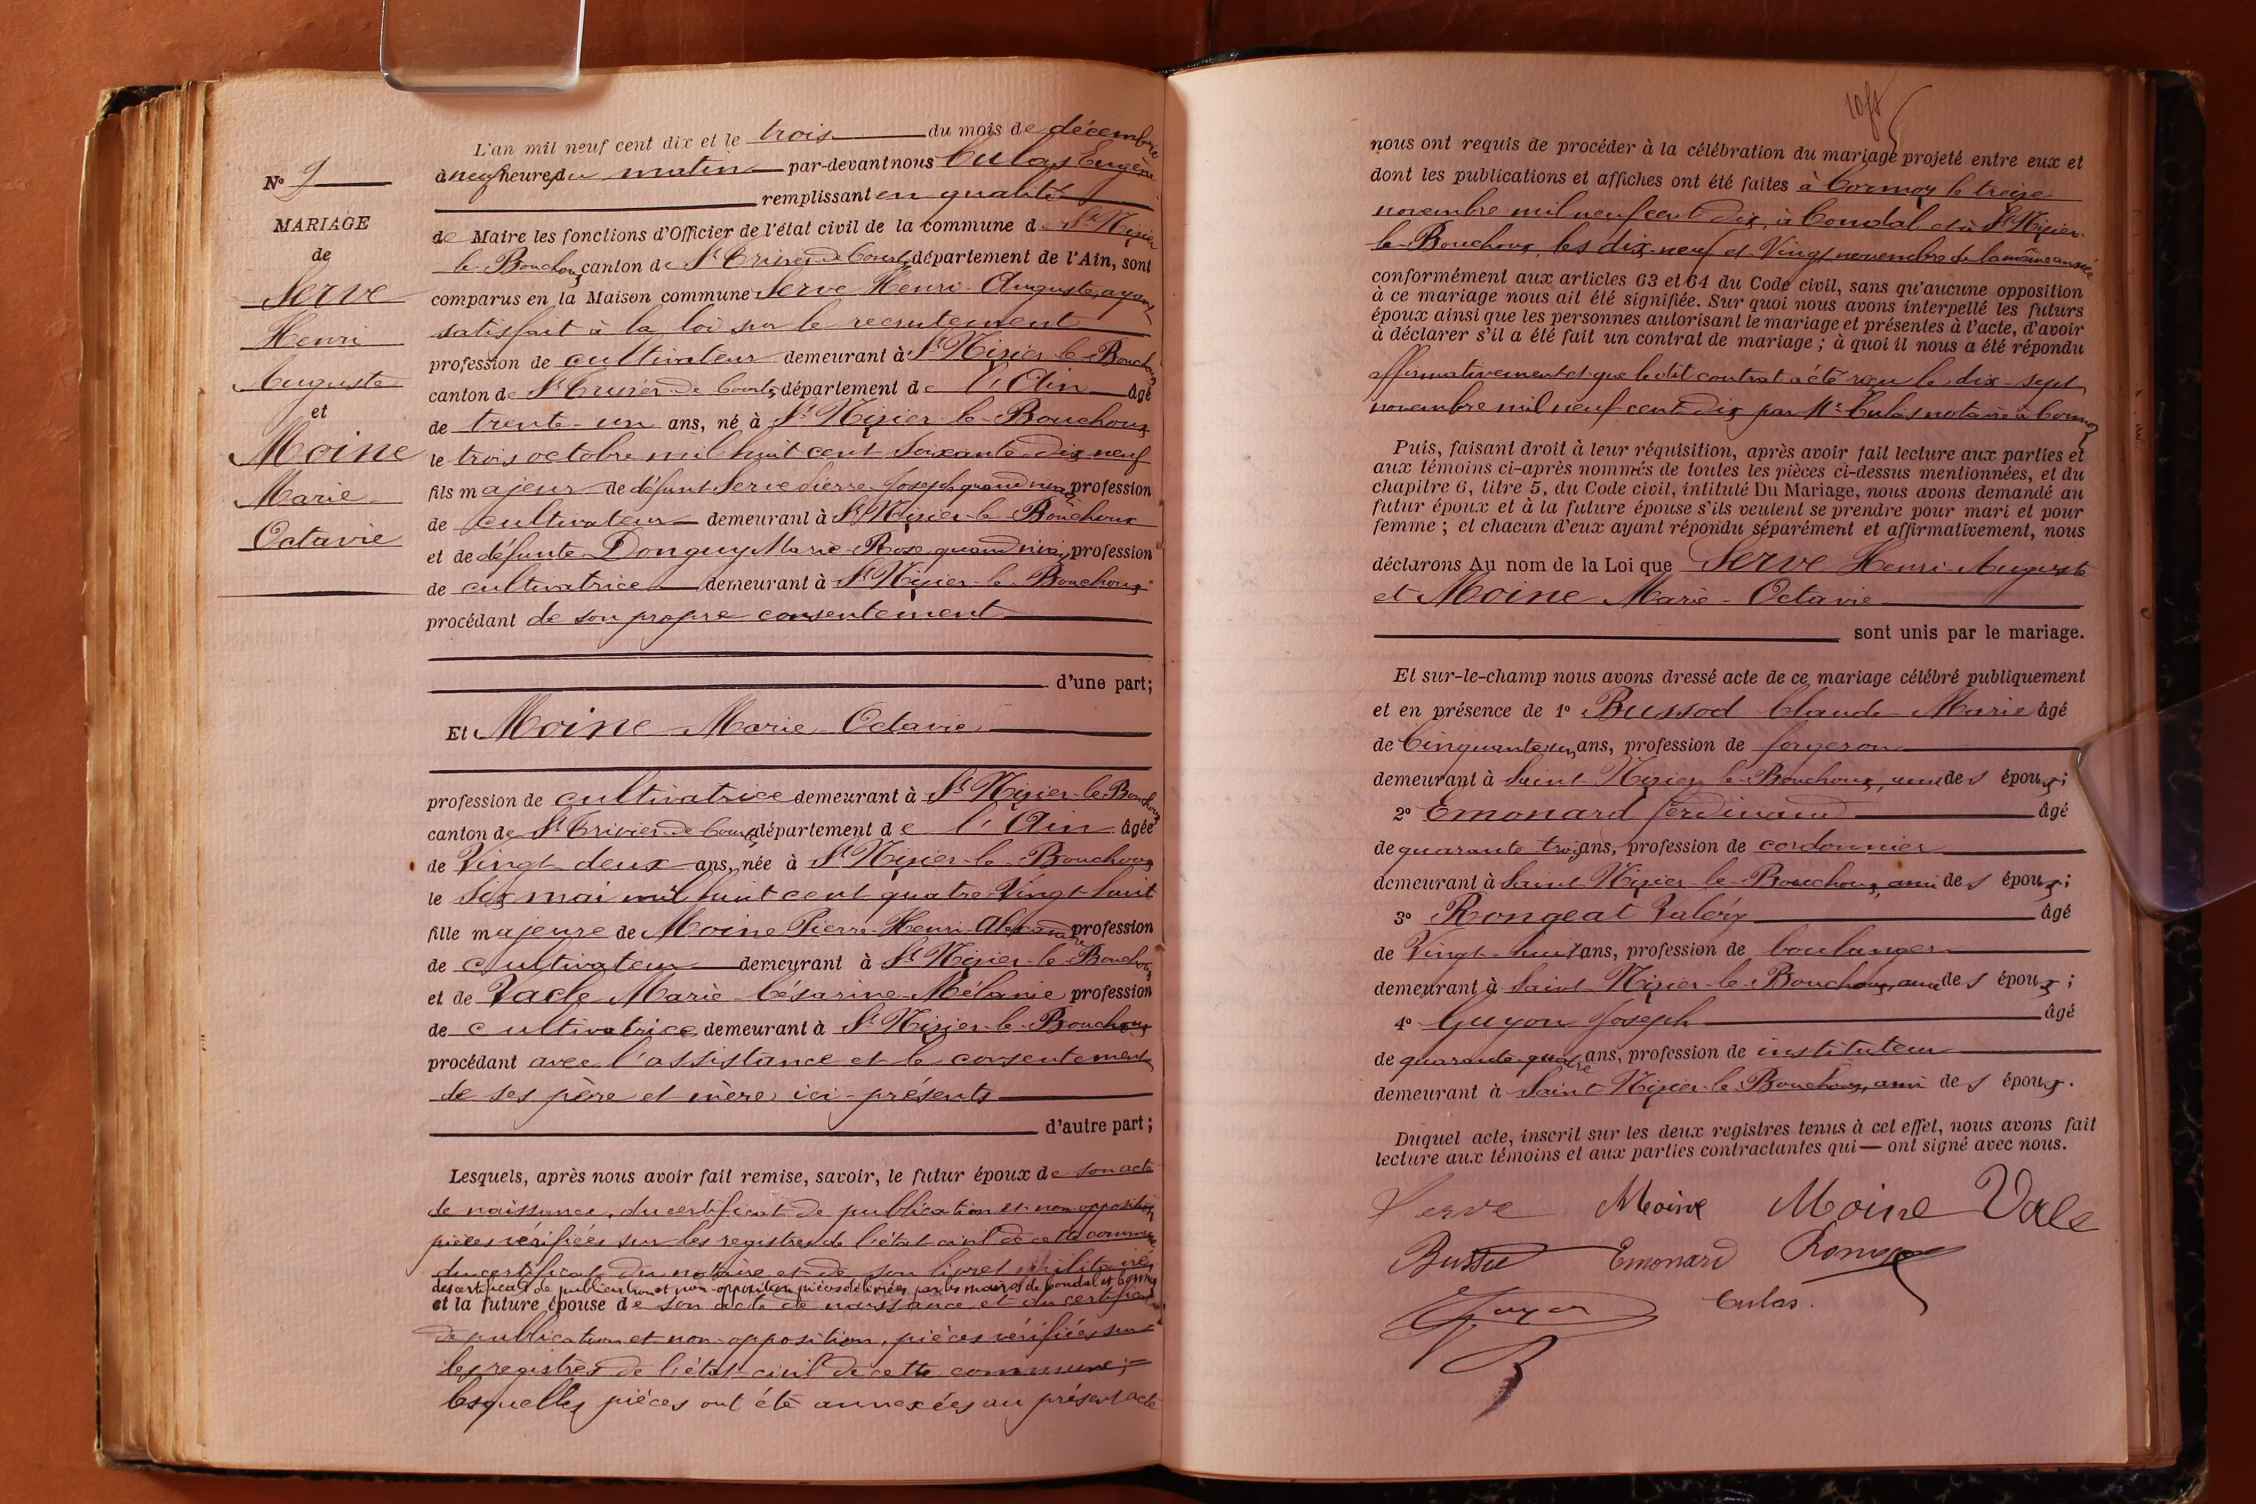 N° 9
MARIAGE
de
Serve
Henri
Auguste
et
Moine
Marie
Octavie
L'an mil neuf cent dix et le trois du mois de décembre
à neuf heures du matin par-devant nous Culas Eugène
remplissant en qualité
de Maire les fonctions d'Officier de l'état civil de la commune de St Nizier
le Bouchoux canton de St Trivier-de-Courtes département de l'Ain, sont
comparus en la Maison commune Serve Henri-Auguste, ayant
satisfait à la loi sur le recrutement
profession de cultivateur demeurant à St Nizier-le-Bouchoux
canton de St Trivier-de-Courtes, département de l'Ain âgé
de trente-un ans, né à St Nizier-le-Bouchoux
le trois octobre mil huit cent soixante-dix neuf
fils majeur de défunt Serve Pierre-Joseph quand vivait profession
de cultivateur demeurant à St Nizier-le-Bouchoux
et de défunte Donguy Marie-Rose quand vivait, profession
de cultivatrice demeurant à St Nizier-le-Bouchoux
procédant de son propre consentement
d'une part;
Et Moine Marie-Octavie
profession de cultivatrice demeurant à St Nizier-le-Bouchoux
canton de St Trivier-de-Courtes département de l'Ain âgée
de Vingt-deux ans, née à St Nizier-le-Bouchoux
le six mai mil huit cent quatre-Vingt-huit
fille majeure de Moine Pierre-Henri-Alexandre profession
de cultivateur demeurant à St Nizier-le-Bouchoux
et de Vacle Marie-Césarine-Mélanie profession
de cultivatrice demeurant à St Nizier-le-Bouchoux
procédant avec l'assistance et le consentement
de ses père et mère ici-présents
d'autre part;
Lesquels, après nous avoir fait remise, savoir, le futur époux de son acte
de naissance, du certificat de publication et non-opposition
pièces vérifiées sur les registres de l'état civil de cette commune,
du certificat du notaire et de son livret militaire,
des certificats de publication et non-opposition pièces délivrées par les maires de Condal et Cormoz
et la future épouse de son acte de naissance et du certificat
de publication et non-opposition, pièces vérifiées sur
les registres de l'état-civil de cette commune;
lesquelles pièces ont été annexées au présent acte
nous ont requis de procéder à la célébration du mariage projeté entre eux et
dont les publications et affiches ont été faites à Cormoz le treize
novembre mil neuf cent dix, à Condal et à St Nizier-
le-Bouchoux, les dix-neuf et Vingt novembre de la même année
conformément aux articles 63 et 64 du Code civil, sans qu'aucune opposition
à ce mariage nous ait été signifiée. Sur quoi nous avons interpellé les futurs
époux ainsi que les personnes autorisant le mariage et présentes à l'acte, d'avoir
à déclarer s'il a été fait un contrat de mariage; à quoi il nous a été répondu
affirmativement et que ledit contrat a été reçu le dix-sept
novembre mil neuf cent dix par Me Culas notaire à Cormoz
Puis, faisant droit à leur réquisition, après avoir fait lecture aux parties et
aux témoins ci-après nommés de toutes les pièces ci-dessus mentionnées, et du
chapitre 6, titre 5, du Code civil, intitulé Du Mariage, nous avons demandé au
futur époux et à la future épouse s'ils veulent se prendre pour mari et pour
femme; et chacun d'eux ayant répondu séparément et affirmativement, nous
déclarons Au nom de la Loi que Serve Henri-Auguste
et Moine Marie-Octavie
sont unis par le mariage.
Et sur-le-champ nous avons dressé acte de ce mariage célébré publiquement
et en présence de 1° Bussod Claude-Marie âgé
de Cinquante-un ans, profession de forgeron
demeurant à Saint Nizier-le-Bouchoux, ami des époux;
2° Emonard Ferdinand âgé
de quarante trois ans, profession de cordonnier
demeurant à Saint Nizier-le-Bouchoux, ami des époux;
3° Rongeat Valéry âgé
de Vingt-huit ans, profession de boulanger
demeurant à Saint Nizier-le-Bouchoux, ami des époux;
4° Guyon Joseph âgé
de quarante-quatre ans, profession de instituteur
demeurant à Saint-Nizier-le-Bouchoux, ami des époux.
Duquel acte, inscrit sur les deux registres tenus à cet effet, nous avons fait
lecture aux témoins et aux parties contractantes qui — ont signé avec nous.
Serve Moine Moine Vacle
Bussod Emonard Rongeat
Guyon Culas.